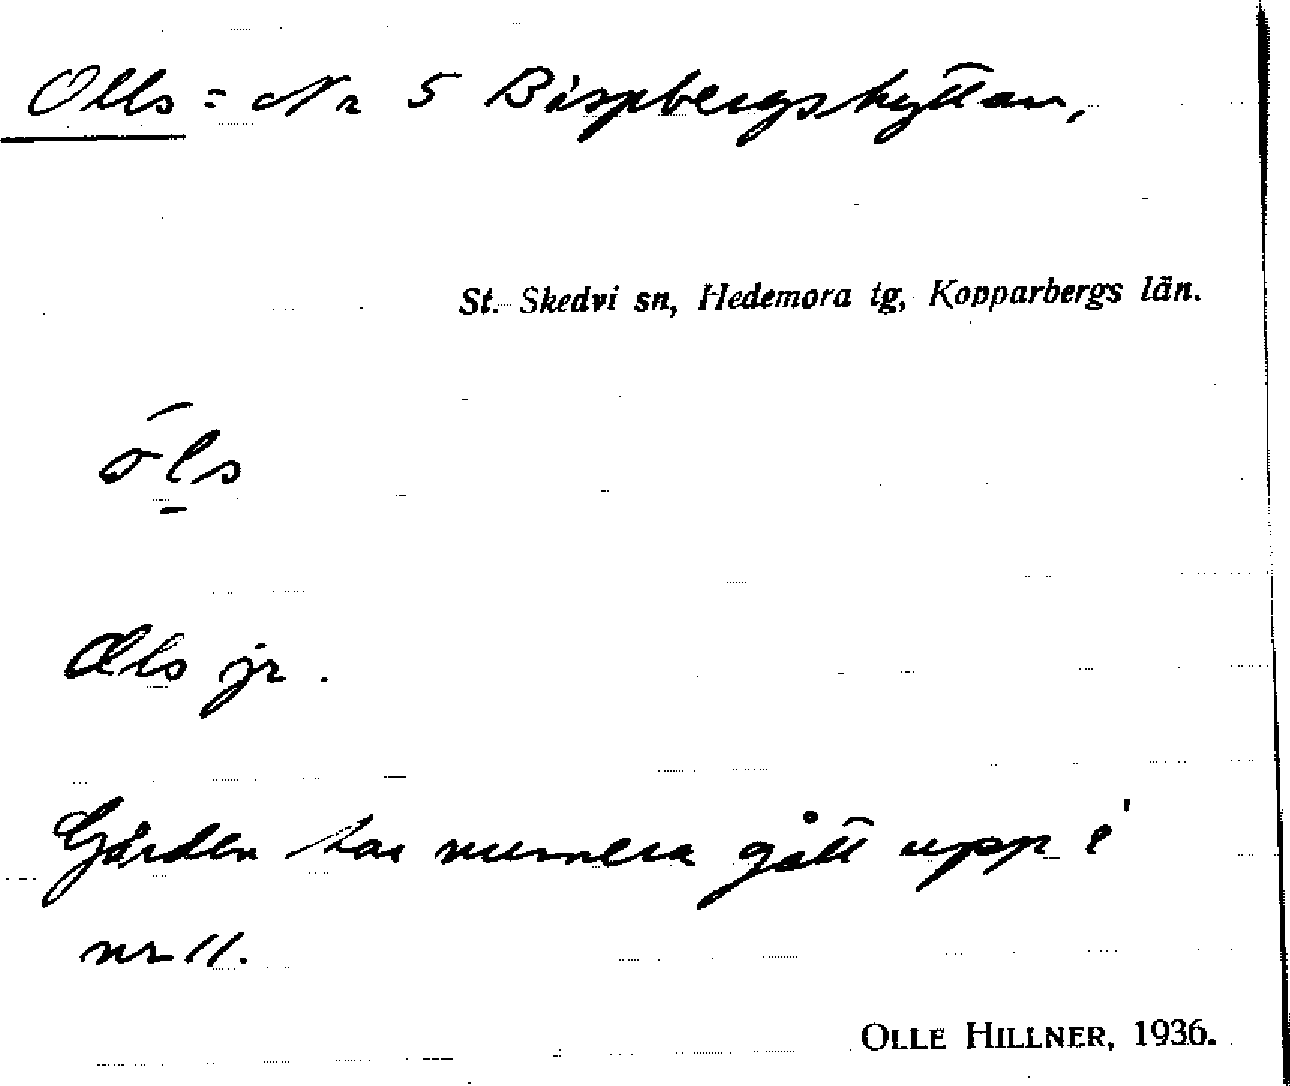 Olls = Nr 5 Bispbergshyttan,
St. Skedvi sn, Hedemora tg, Kopparbergs län.
ōls
Olls jr.
Gården har numera gått upp i
nr 11.
OLLE HILLNER, 1936.